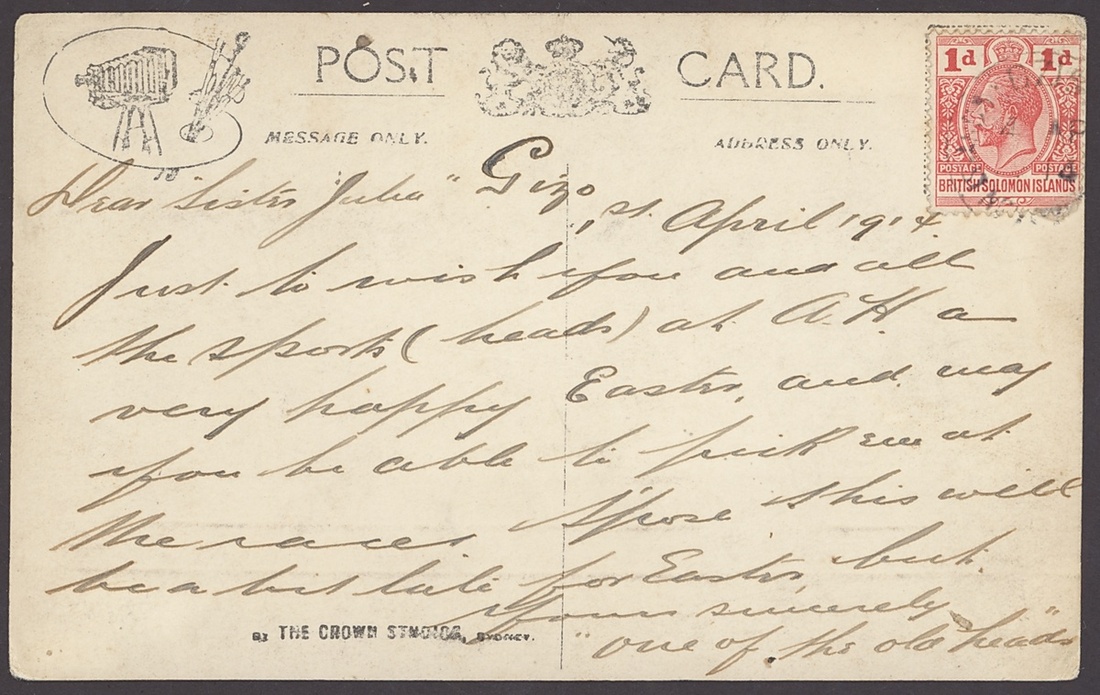 POST CARD.
MESSAGE ONLY. ADDRESS ONLY.
1d 1d
POSTAGE POSTAGE
BRITISH SOLOMON ISLANDS
Dear "Sister Julia" Gizo
1st. April 1914.
Just to wish you and all
the sports (heads) at A.H. a
very happy Easter, and may
you be able to pick em at
the races. S'pose this will
be a bit late for Easter but.
Yours sincerely
"one of the old heads"
BY THE CROWN STUDIOS, SYDNEY.